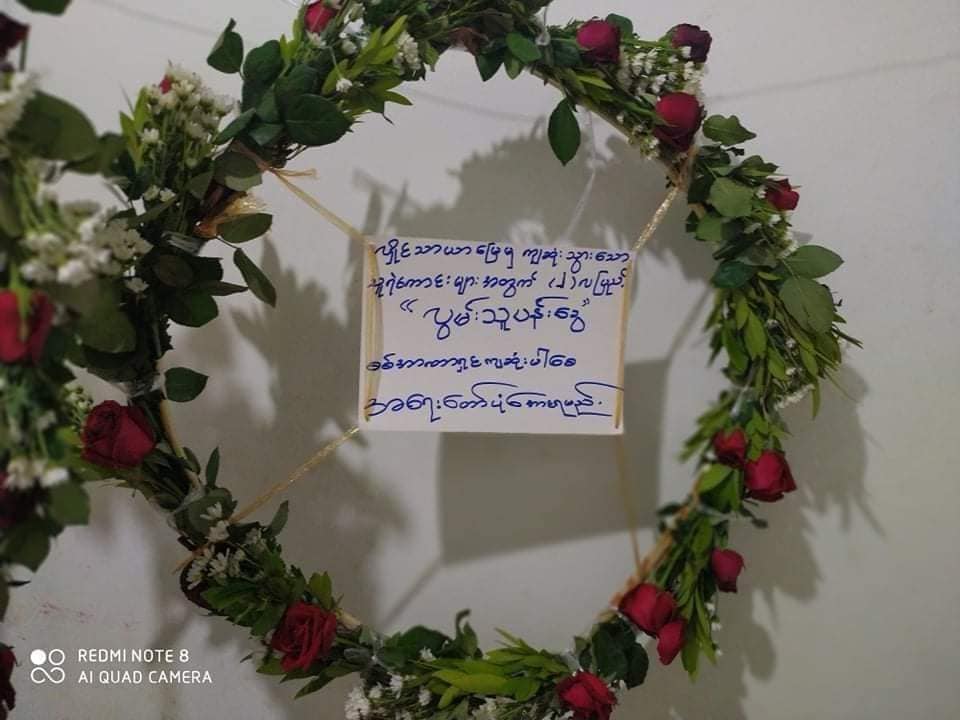 လှိုင်သာယာမြေမှ ကျဆုံးသွားသော
သူရဲကောင်းများအတွက် (၂) လပြည့်
"လွမ်းသူပန်းခွေ"
စစ်အာဏာရှင်ကျဆုံးပါစေ
အရေးတော်ပုံအောင်ရမည်.
REDMI NOTE 8
AI QUAD CAMERA